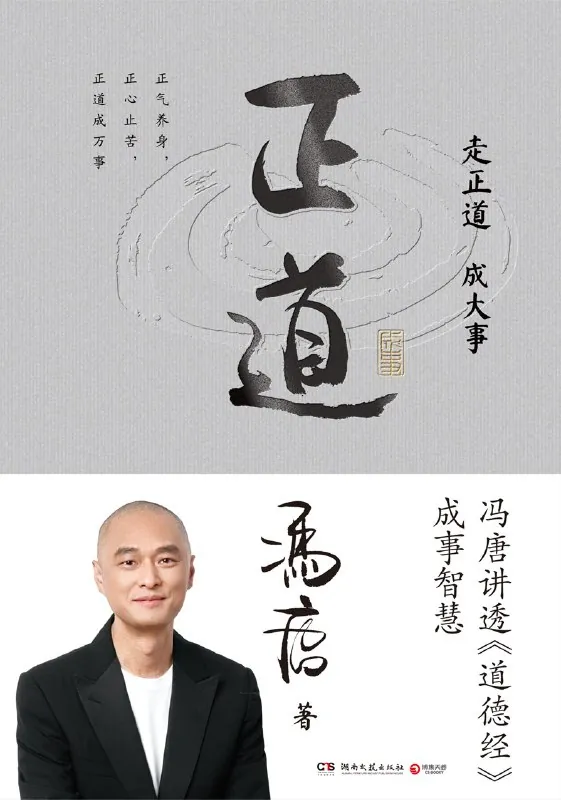 正气养身，
正心止苦，
正道成万事
正道
走正道 成大事
成事
冯唐
著
冯唐讲透《道德经》
成事智慧
湖南文艺出版社
博集天卷
CS-BOOKY